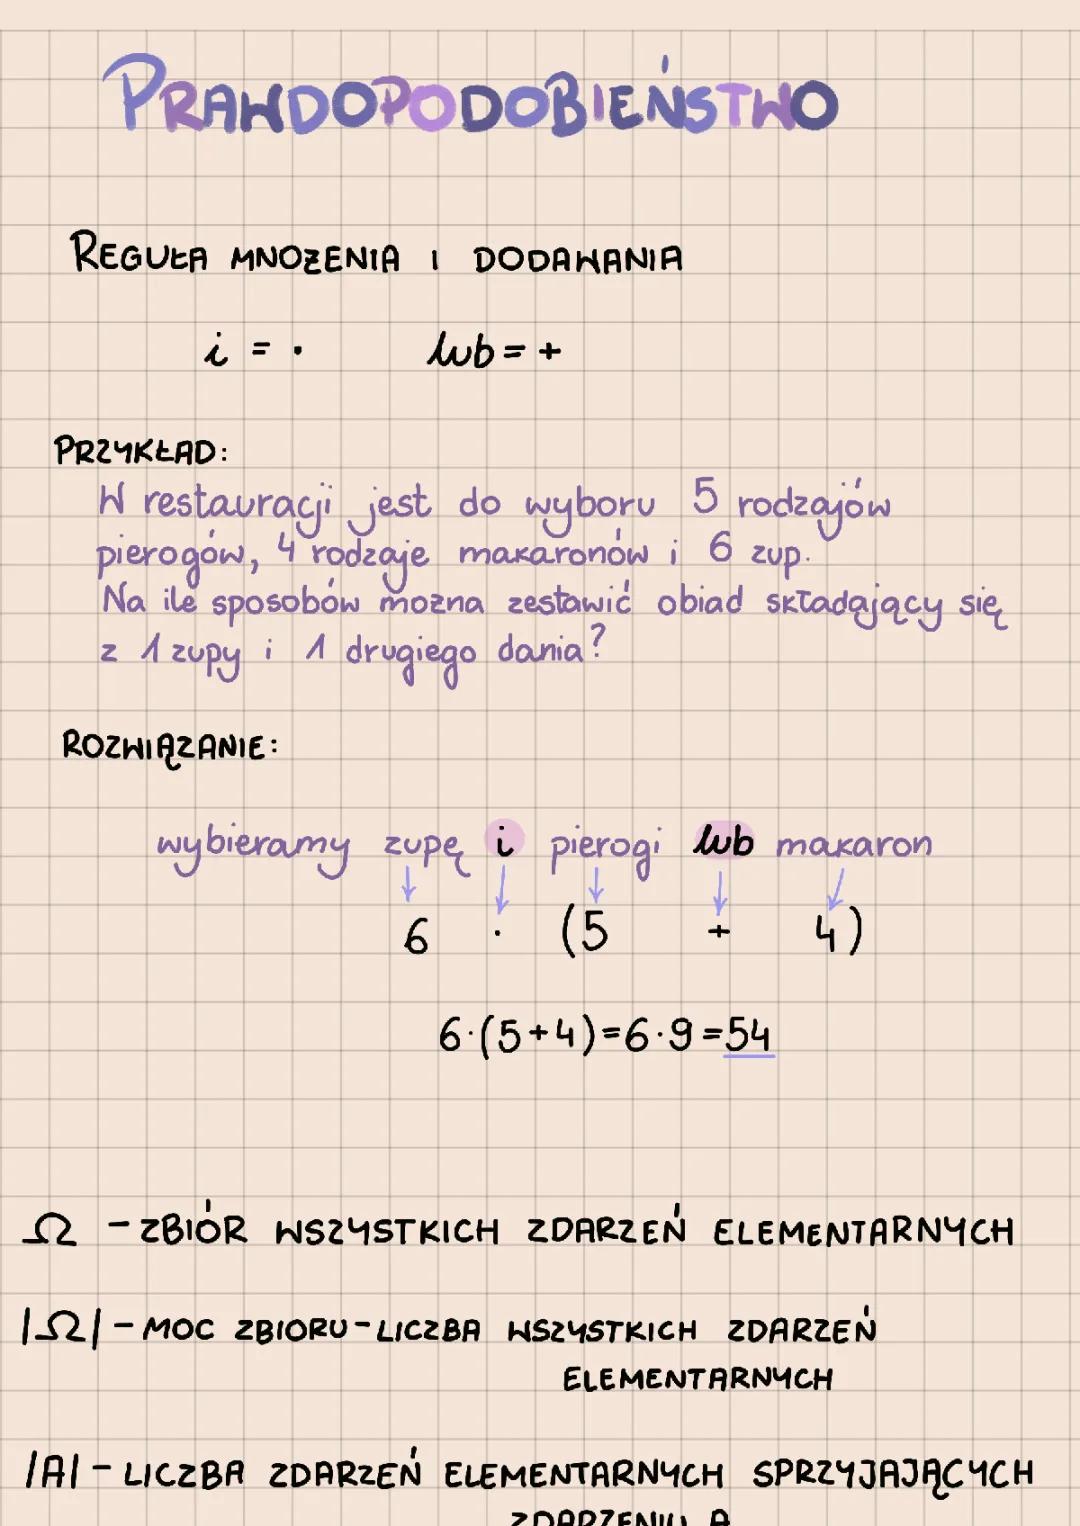 PRAWDOPODOBIEŃSTWO
REGUŁA MNOŻENIA I DODAWANIA
i = ·    lub = +
PRZYKŁAD:
W restauracji jest do wyboru 5 rodzajów
pierogów, 4 rodzaje makaronów i 6 zup.
Na ile sposobów można zestawić obiad składający się
z 1 zupy i 1 drugiego dania?
ROZWIĄZANIE:
wybieramy zupę i pierogi lub makaron
6 · (5 + 4)
6·(5+4)=6·9=54
Ω - ZBIÓR WSZYSTKICH ZDARZEŃ ELEMENTARNYCH
|Ω| - MOC ZBIORU - LICZBA WSZYSTKICH ZDARZEŃ
ELEMENTARNYCH
|A| - LICZBA ZDARZEŃ ELEMENTARNYCH SPRZYJAJĄCYCH
ZDARZENIU A